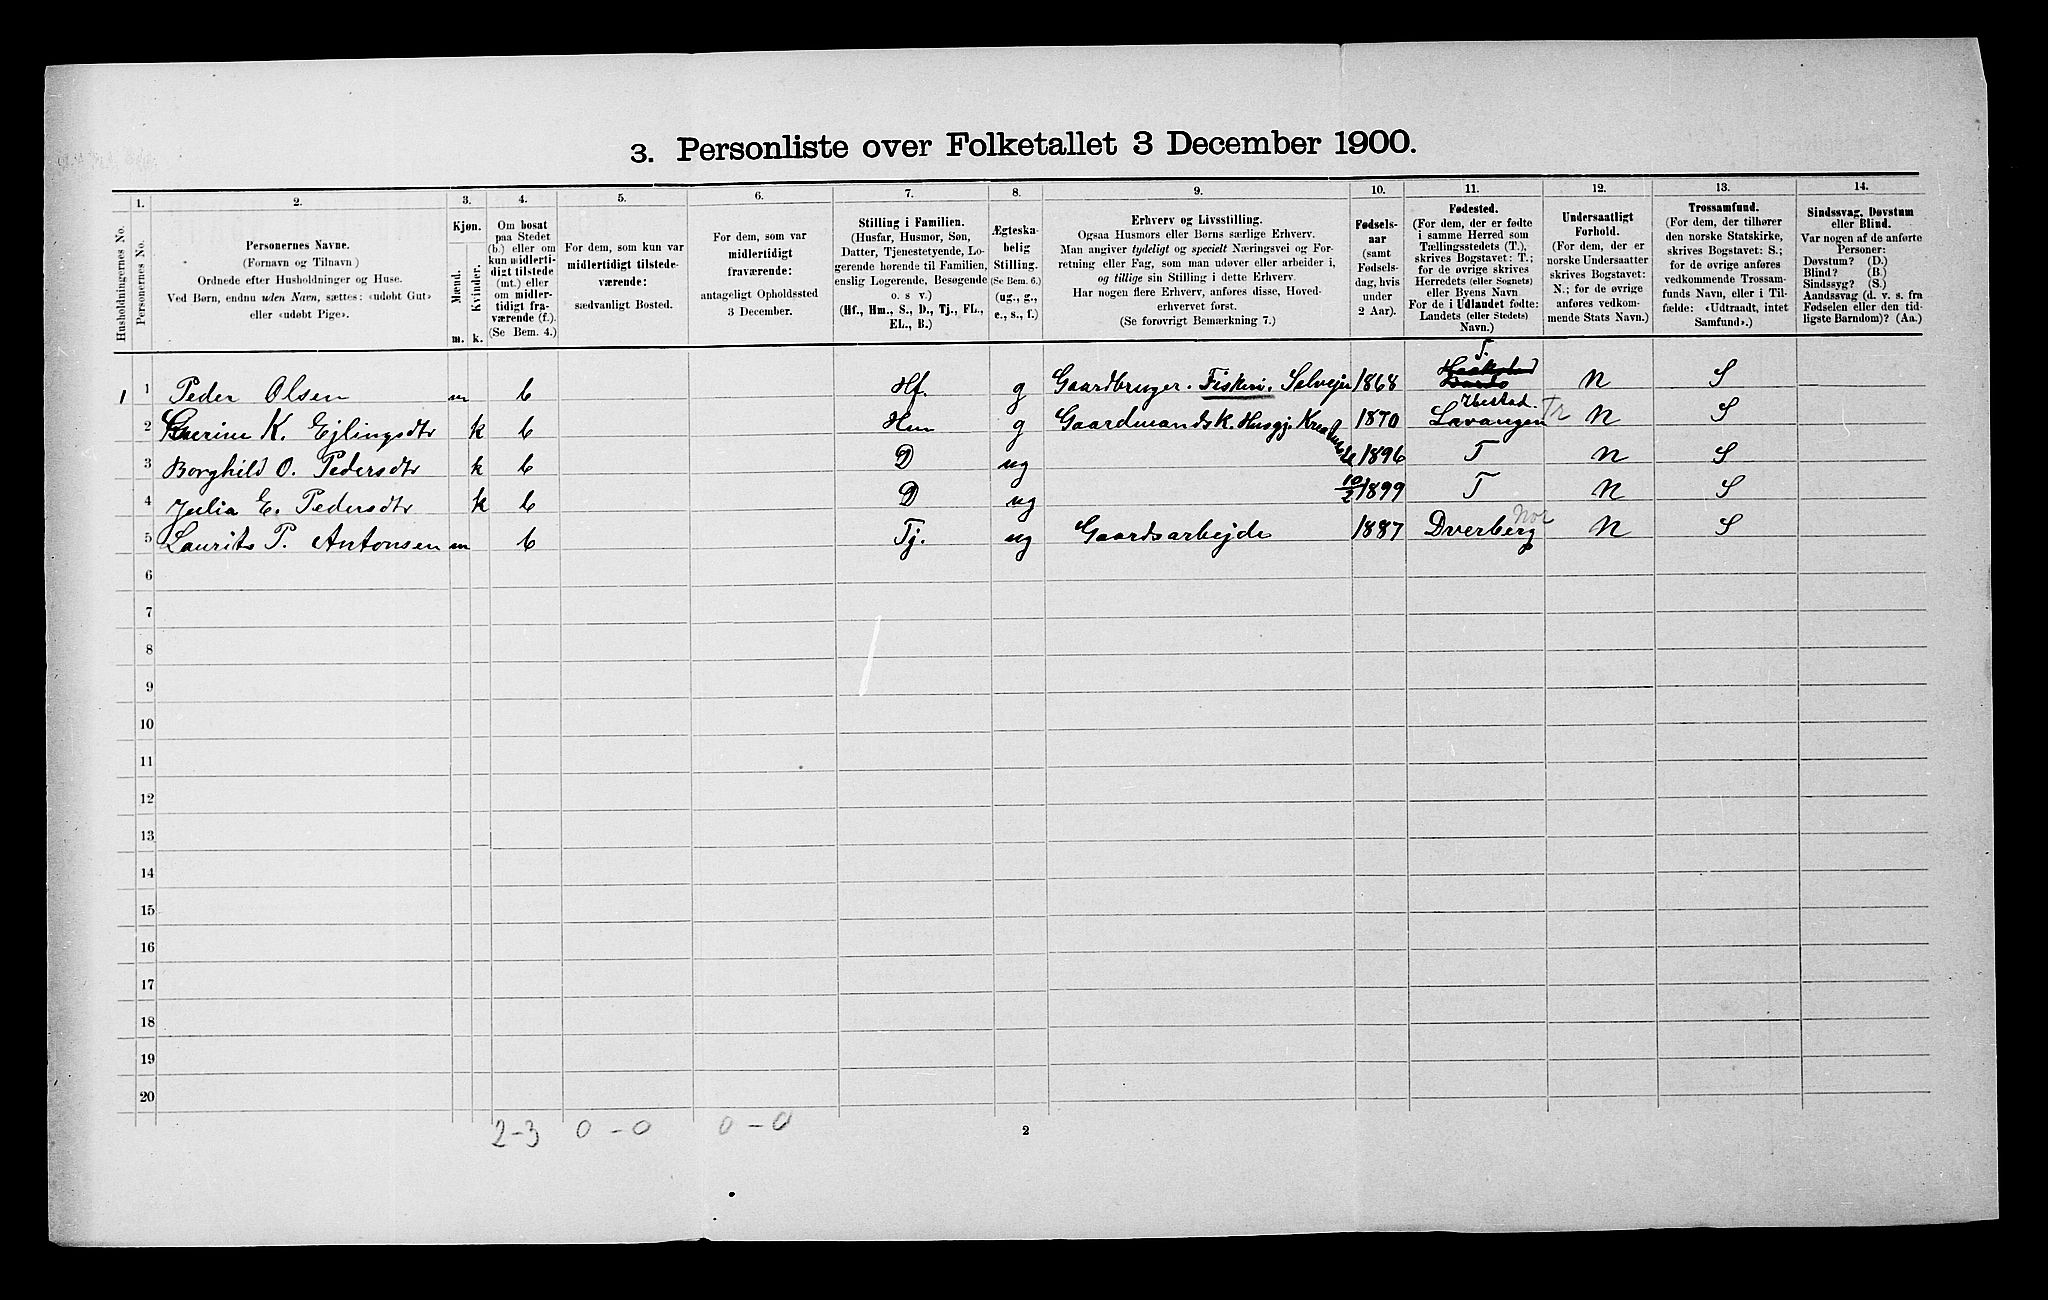 3. Personliste over Folketallet 3 December 1900.
1. 2. 3. 4. 5. 6. 7. 8. 9. 10. 11. 12. 13. 14.
Husholdningernes No.
Personernes No.
Personernes Navne.
(Fornavn og Tilnavn)
Ordnede efter Husholdninger og Huse.
Ved Børn, endnu uden Navn, sættes: «udøbt Gut»
eller «udøbt Pige».
Kjøn.
Mænd.
Kvinder.
m. k.
Om bosat
paa Stedet
(b.) eller om
kun midlerti-
digt tilstede
(mt.) eller
om midler-
tidigt fra-
værende (f.).
(Se Bem. 4.)
For dem, som kun var
midlertidigt tilstede-
værende:
sædvanligt Bosted.
For dem, som var
midlertidigt
fraværende:
antageligt Opholdssted
3 December.
Stilling i Familien.
(Husfar, Husmor, Søn,
Datter, Tjenestetyende, Lo-
gerende hørende til Familien,
enslig Logerende, Besøgende
o. s v.)
(Hf., Hm., S., D., Tj., FL.,
EL., B.)
Ægteska-
belig
Stilling.
(Se Bem. 6.)
(ug., g.,
e., s., f.)
Erhverv og Livsstilling.
Ogsaa Husmors eller Børns særlige Erhverv.
Man angiver tydeligt og specielt Næringsvei og For-
retning eller Fag, som man udøver eller arbeider i,
og tillige sin Stilling i dette Erhverv.
Har nogen flere Erhverv, anføres disse, Hoved-
erhvervet først.
(Se forøvrigt Bemærkning 7.)
Fødsels-
aar
(samt
Fødsels-
dag, hvis
under
2 Aar).
Fødested.
(For dem, der er fødte
i samme Herred som
Tællingsstedets (T.),
skrives Bogstavet: T.;
for de øvrige skrives
Herredets (eller Sognets)
eller Byens Navn
For de i Udlandet fødte:
Landets (eller Stedets)
Navn.)
Undersaatligt
Forhold.
(For dem, der er
norske Undersaatter
skrives Bogstavet:
N.; for de øvrige
anføres vedkom-
mende Stats Navn.)
Trossamfund.
(For dem, der tilhører
den norske Statskirke,
skrives Bogstavet: S.;
for de øvrige anføres
vedkommende Trossam-
funds Navn, eller i Til-
fælde: «Udtraadt, intet
Samfund».)
Sindssvag, Døvstum
eller Blind.
Var nogen af de anførte
Personer:
Døvstum? (D.)
Blind? (B.)
Sindssyg? (S.)
Aandssvag (d. v. s. fra
Fødselen eller den tid-
ligste Barndom)? (Aa.)
1 1 Peder Olsen m b Hf. g Gaardbruger. Fiskeri. Selvejer 1868 T. N S
2 K. Ejlingsdtr k b Hm g Gaardmandsk. Husgj. 1870 Ibestad. Lavangen Tr N S
3 Borghild O. Pedersdtr k b D ug 1896 T N S
4 Julia E. Pedersdtr k b D ug 10/2 1899 T N S
5 Laurits P. Antonsen m b Tj. ug Gaardsarbejde 1887 Dverberg Nor N S
6
7
8
9
10
11
12
13
14
15
16
17
18
19
20
2-3 0-0 0-0
2